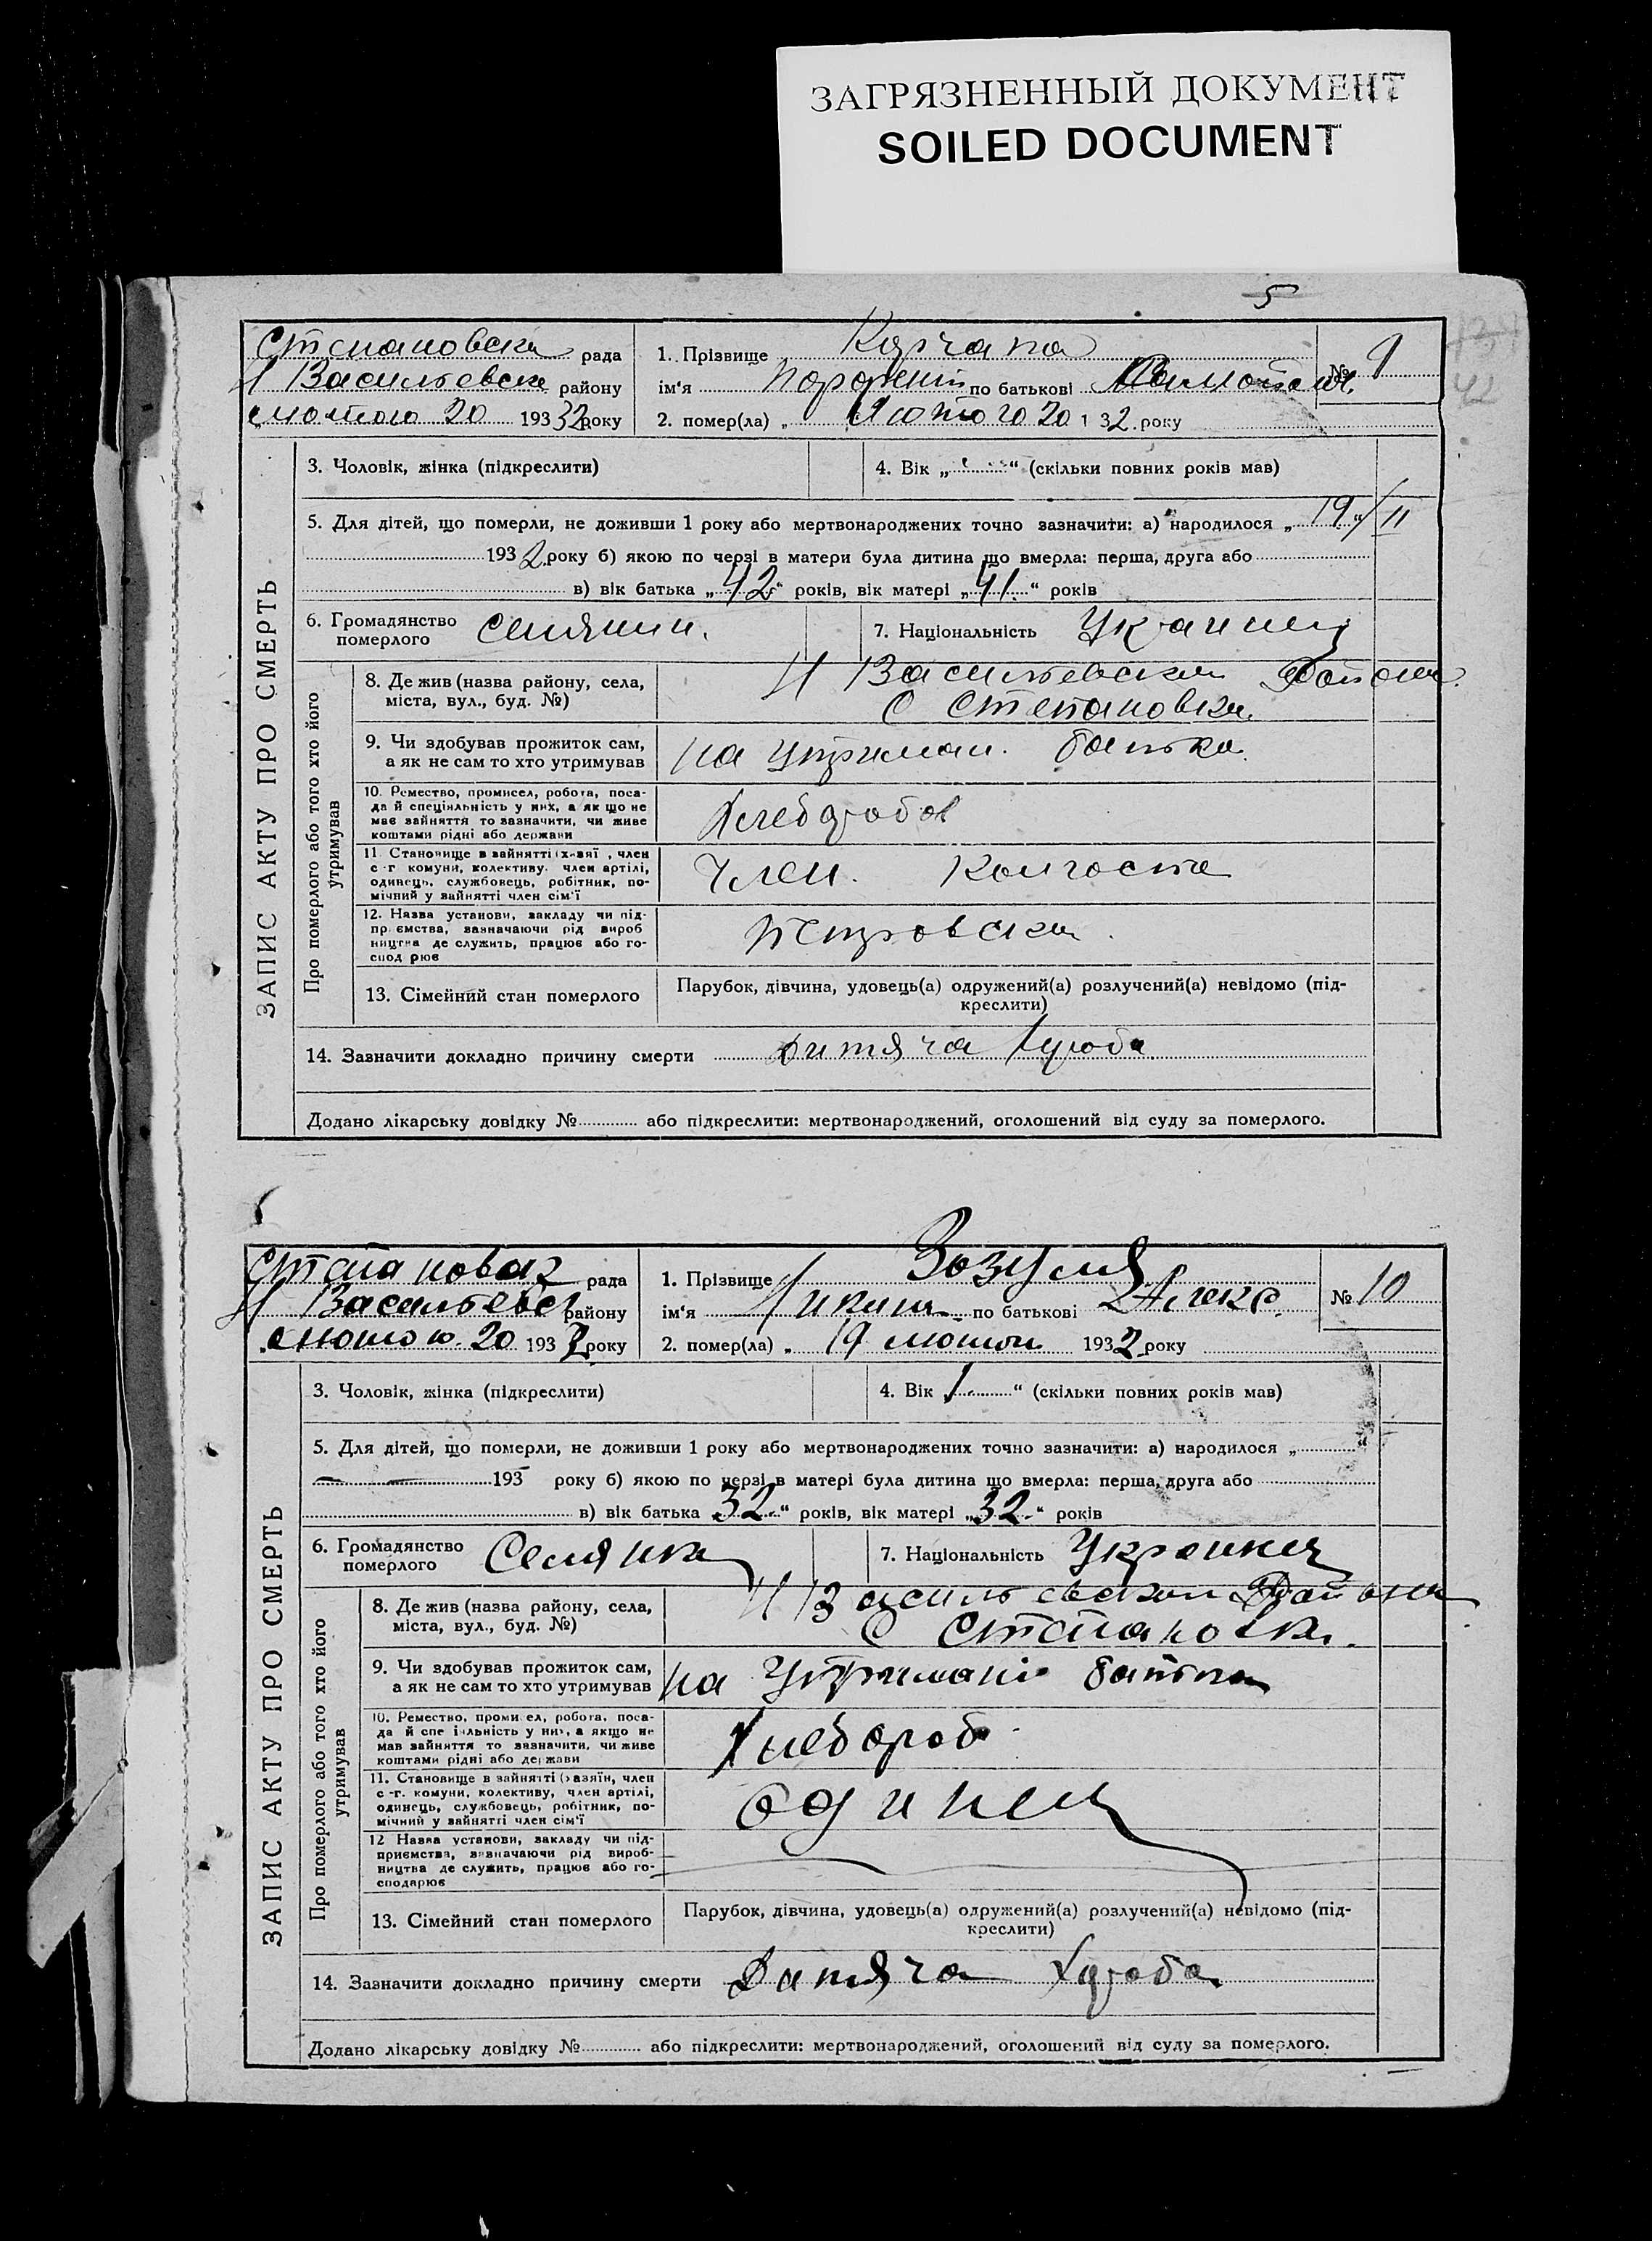 ЗАГРЯЗНЕННЫЙ ДОКУМЕНТ
SOILED DOCUMENT
5
42
ЗАПИС АКТУ ПРО СМЕРТЬ
Степановска рада
Н Васильевск району
лютого 20 1932 року
1. Прізвище
ім'я по батькові
№ 9
2. помер(ла) „ Лютого 20 1 32 року
3. Чоловік, жінка (підкреслити)
4. Вік „ “ (скільки повних років мав)
5. Для дітей, що померли, не доживши 1 року або мертвонароджених точно зазначити: а) народилося „ 19 “ / II
1932 року б) якою по черзі в матери була дитина що вмерла: перша, друга або
в) вік батька „ 42 “ років, вік матері „ 41. “ років
6. Громадянство померлого селянин.
7. Національність Украинец
Про померлого або того хто його утримував
8. Де жив (назва району, села, міста, вул., буд. №)
Н Васильевском Района.
С Степановка.
9. Чи здобував прожиток сам, а як не сам то хто утримував
на утриман. батька.
10. Ремество, промисел, робота, посада й спеціяльність у них, а як що не має зайняття то зазначити, чи живе коштами рідні або держави
Хлебороб
11. Становище в зайнятті (х-вяї , член с-г комуни, колективу, член артілі, одинець, службовець, робітник, помічний у зайнятті член сім'ї
Член. Колгоспа
12. Назва установи, закладу чи підпр ємства, зазначаючи рід вироб ництва де служить, працює або господ рює
Петровски
13. Сімейний стан померлого
Парубок, дівчина, удовець(а) одружений(а) розлучений(а) невідомо (підкреслити)
14. Зазначити докладно причину смерти Дитяча Хороба
Додано лікарську довідку № або підкреслити: мертвонароджений, оголошений від суду за померлого.
ЗАПИС АКТУ ПРО СМЕРТЬ
рада
Н Васильевск району
лютого 20 1932 року
1. Прізвище Зозуля
ім'я по батькові Алекс.
№ 10
2. помер(ла) „ 19 лютого 1932 року
3. Чоловік, жінка (підкреслити)
4. Вік 1 “ (скільки повних років мав)
5. Для дітей, що померли, не доживши 1 року або мертвонароджених точно зазначити: а) народилося „ “
193 року б) якою по черзі в матері була дитина що вмерла: перша, друга або
в) вік батька 32 “ років, вік матері „ 32 “ років
6. Громадянство померлого Селянка
7. Національність Украинец
Про померлого або того хто його утримував
8. Де жив (назва району, села, міста, вул., буд. №)
Н Васильевском Района
С Степановка.
9. Чи здобував прожиток сам, а як не сам то хто утримував
на Утримані батька
10. Ремество, проми ел, робота, посада й спе іяльність у них, а якщо не мав зайняття то зазначити, чи живе коштами рідні або держави
Хлебороб
11. Становище в зайнятті (хазяїн, член с-г. комуни, колективу, член артілі, одинець, службовець, робітник, помічний у зайнятті член сім'ї
одинец
12 Назва установи, закладу чи підприємства, зазначаючи рід виробництва де служить, працює або господарює
13. Сімейний стан померлого
Парубок, дівчина, удовець(а) одружений(а) розлучений(а) невідомо (підкреслити)
14. Зазначити докладно причину смерти Дитяча Хороба
Додано лікарську довідку № або підкреслити: мертвонароджений, оголошений від суду за померлого.